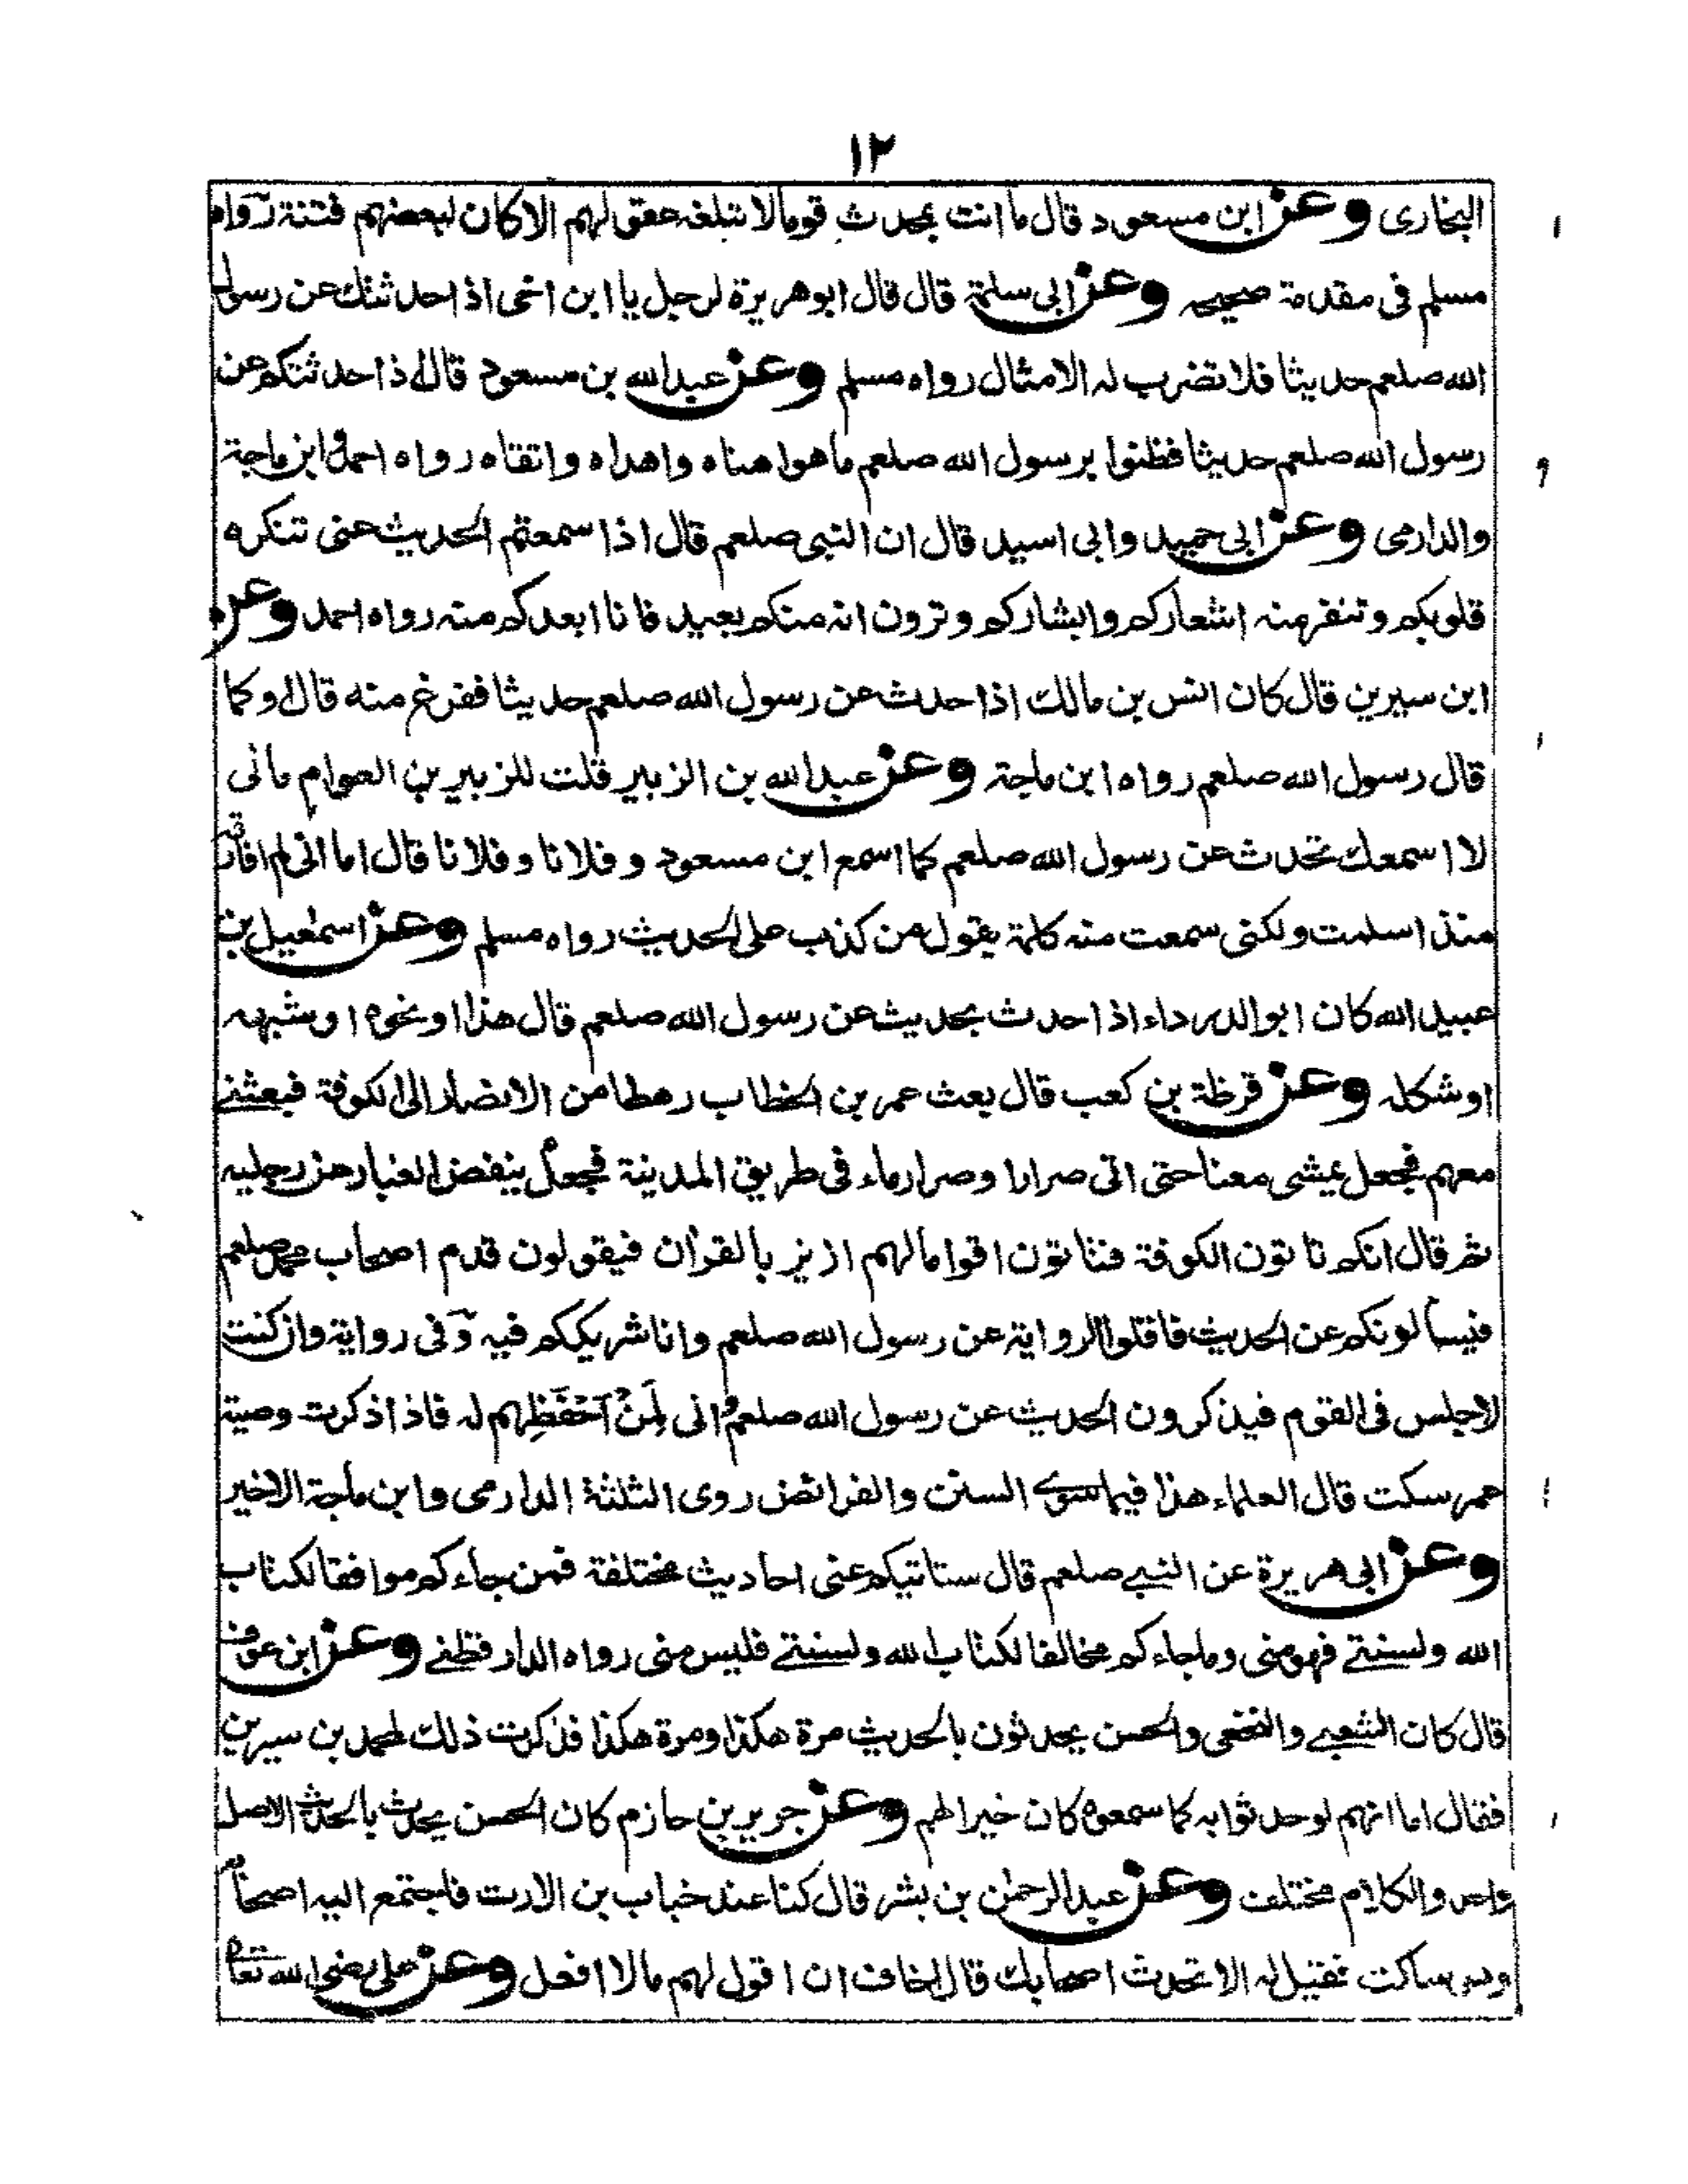 ١٢
البخارى وعن ابن مسعود قال ما انت بمحدث قوما لا تبلغه عقولهم الا كان لبعضهم فتنة رواه
مسلم فى مقدمة صحيحه وعن ابى سلمة قال قال ابو هريرة لرجل يا ابن اخى اذا حدثتك عن رسول
الله صلعم حديثا فلا تضرب له الامثال رواه مسلم وعن عبد الله بن مسعود قال اذا حدثتكم عن
رسول الله صلعم حديثا فظنوا برسول الله صلعم ما هو اهناه واهداه واتقاه رواه احمد وابن ماجة
والدارمى وعن ابى حميد وابى اسيد قال ان النبى صلعم قال اذا سمعتم الحديث عنى تنكره
قلوبكم وتنفر منه اشعاركم وابشاركم وترون انه منكم بعيد فانا ابعدكم منه رواه احمد وعن
ابن سيرين قال كان انس بن مالك اذا حدث عن رسول الله صلعم حديثا ففرغ منه قال او كما
قال رسول الله صلعم رواه ابن ماجة وعن عبد الله بن الزبير قلت للزبير بن العوام مالى
لا اسمعك تحدث عن رسول الله صلعم كما اسمع ابن مسعود وفلانا وفلانا قال اما انى لم افارقه
منذ اسلمت ولكنى سمعت منه كلمة يقول من كذب على الحديث رواه مسلم وعن اسمٰعيل بن
عبيد الله كان ابو الدرداء اذا حدث بحديث عن رسول الله صلعم قال هذا او نحوه او شبهه
او شكله وعن قرظة بن كعب قال بعث عمر بن الخطاب رهطا من الانصار الى الكوفة فبعثنے
معهم فجعل يمشى معنا حتى اتى صرارا وصرار ماء فى طريق المدينة فجعل ينفض الغبار عن رجليه
ثم قال انكم تاتون الكوفة فتاتون اقواما لهم ازيز بالقرآن فيقولون قدم اصحاب محمد صلعم
فيسألونكم عن الحديث فاقلوا الرواية عن رسول الله صلعم وانا شريككم فيه وفى رواية وان كنت
لاجلس فى القوم فيذكرون الحديث عن رسول الله صلعم وانى لَمِنْ اَحْفَظِهم له فاذا ذكرت وصية
عمر سكت قال العلماء هذا فيما سوے السنن والفرائض روى الثلثة الدارمى وابن ماجة الاخير
وعن ابى هريرة عن النبے صلعم قال ستاتيكم عنى احاديث مختلفة فمن جاءكم موافقا لكتاب
الله ولسنتے فهو منى وما جاءكم مخالفا لكتاب الله ولسنتے فليس منى رواه الدارقطنے وعن ابن عون
قال كان الشعبے والنخعى والحسن يحدثون بالحديث مرة هكذا ومرة هكذا فذكرت ذلك لمحمد بن سيرين
فقال اما انهم لو حدثوا به كما سمعوه كان خيرا لهم وعن جرير بن حازم كان الحسن يحدث بالحديث الاصل
واحد والكلام مختلف وعن عبد الرحمٰن بن بشر قال كنا عند خباب بن الارت فاجتمع اليه اصحابه
وهو ساكت فقيل له الا تحدث اصحابك قال اخاف ان اقول لهم ما لا افعل وعن على رضى الله تعالى